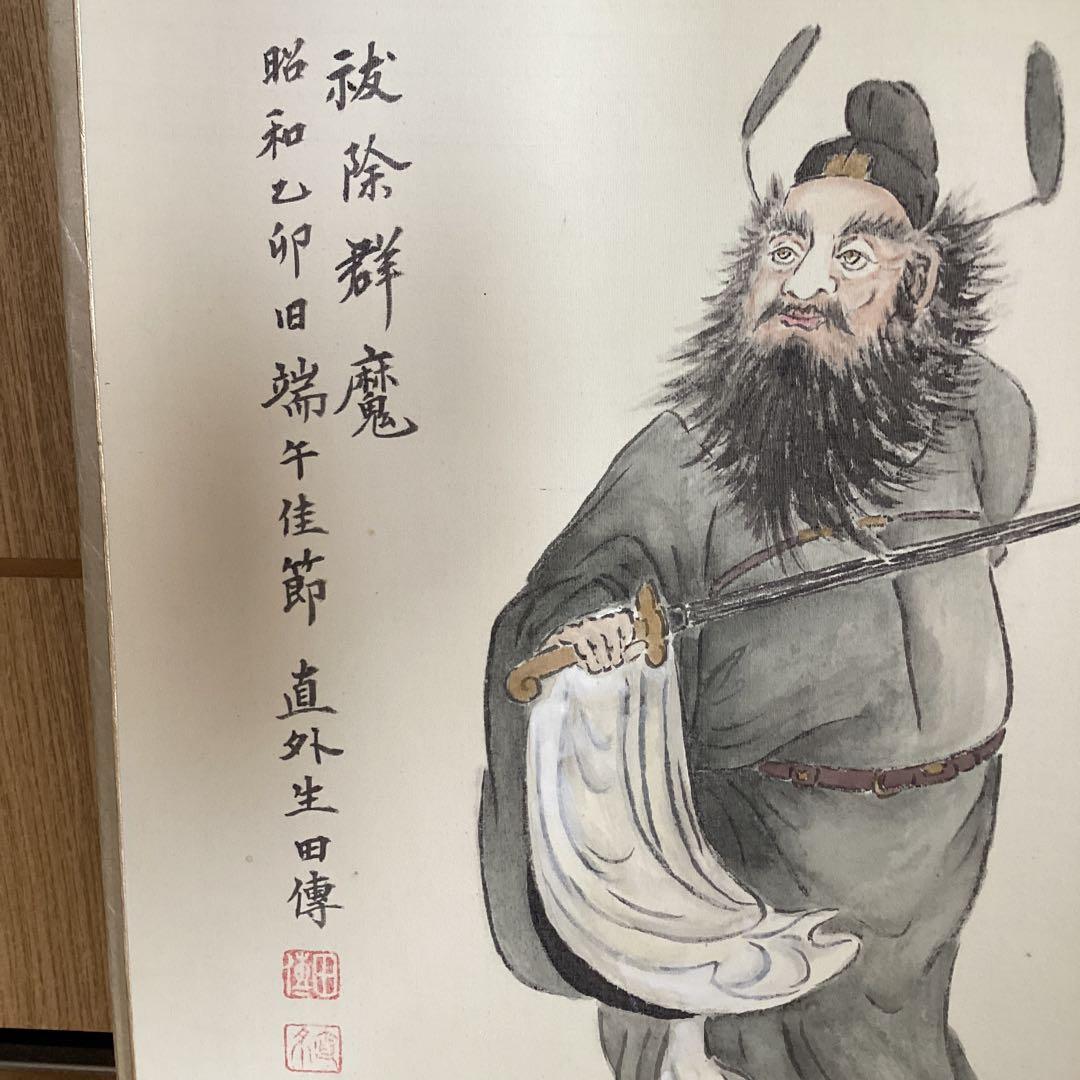 祓除群魔
昭和乙卯旧端午佳節 直外生田傳
田傳
直外